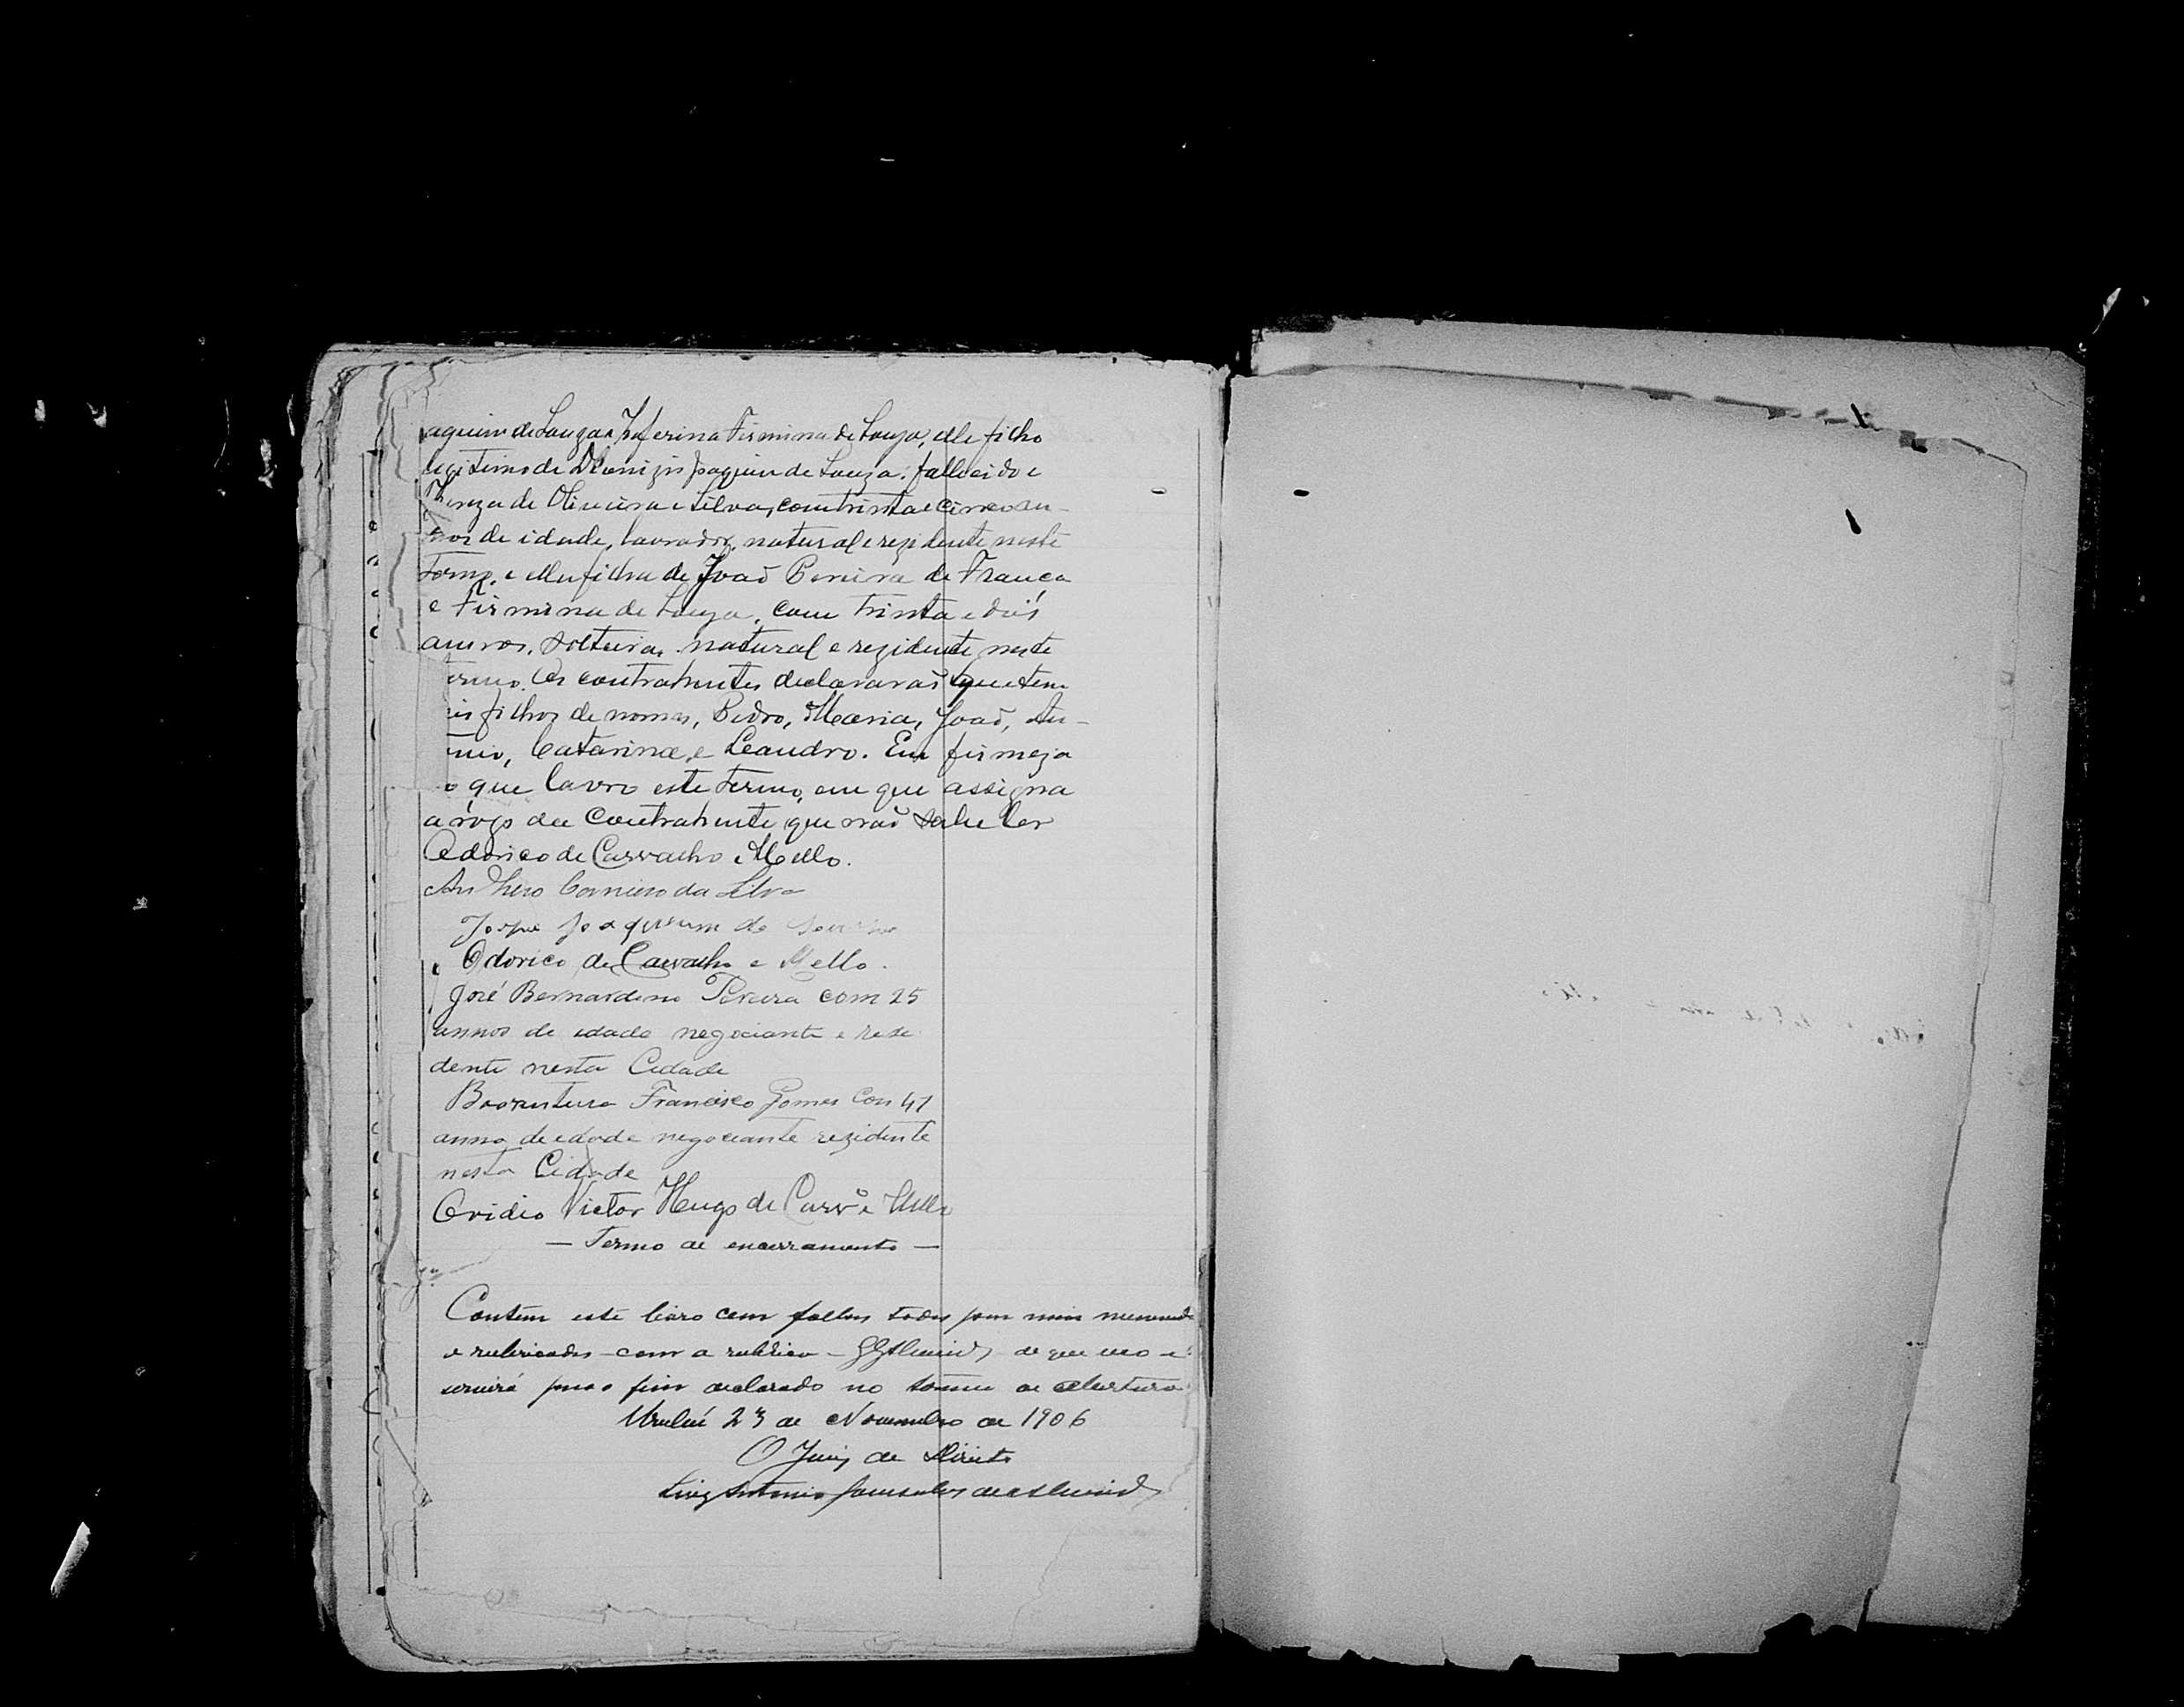 aquim de Souza e Zeferina Firmina de Souza, elle filho
legitimo de Dionizio Joaquim de Souza, fallecido e
Thereza de Oliveira e Silva, com trinta e cinco an-
nos de idade, lavrador, natural e rezidente neste
Termo, e ella filha de João Pereira de França
e Firmina de Souza, com trinta e dois
annos, solteira, natural e rezidente neste
ermo. Os contrahentes declararaõ que tem
is filhos de nomes, Pedro, Maria, Joaõ, An-
nio, Catarina, e Leandro. Em firmeza
o que lavro este termo, em que assigna
a rogo da contrahente que naõ sabe ler
Odorico de Carvalho e Mello.
Carneiro da Silva
Joaquim de
Odorico de Carvalho e Mello.
José Bernardino Pereira com 25
annos de edade negociante e rese
dente nesta Cidade
Boaventura Francisco Gomes Con 47
anno de edade negociante rezidente
nesta Cidade
Ovidio Victor Hugo de Carvº e Mello
— Termo de encerramento —
Contem este livro cem folhas todas por mim numerad
e rubricadas com a rubrica - de que uso e
servirá para o fim declarado no termo de abertura
Urussuhy 23 de Novembro de 1906
O Juiz de Direito
Luiz Antonio Gonsalves de Almeida